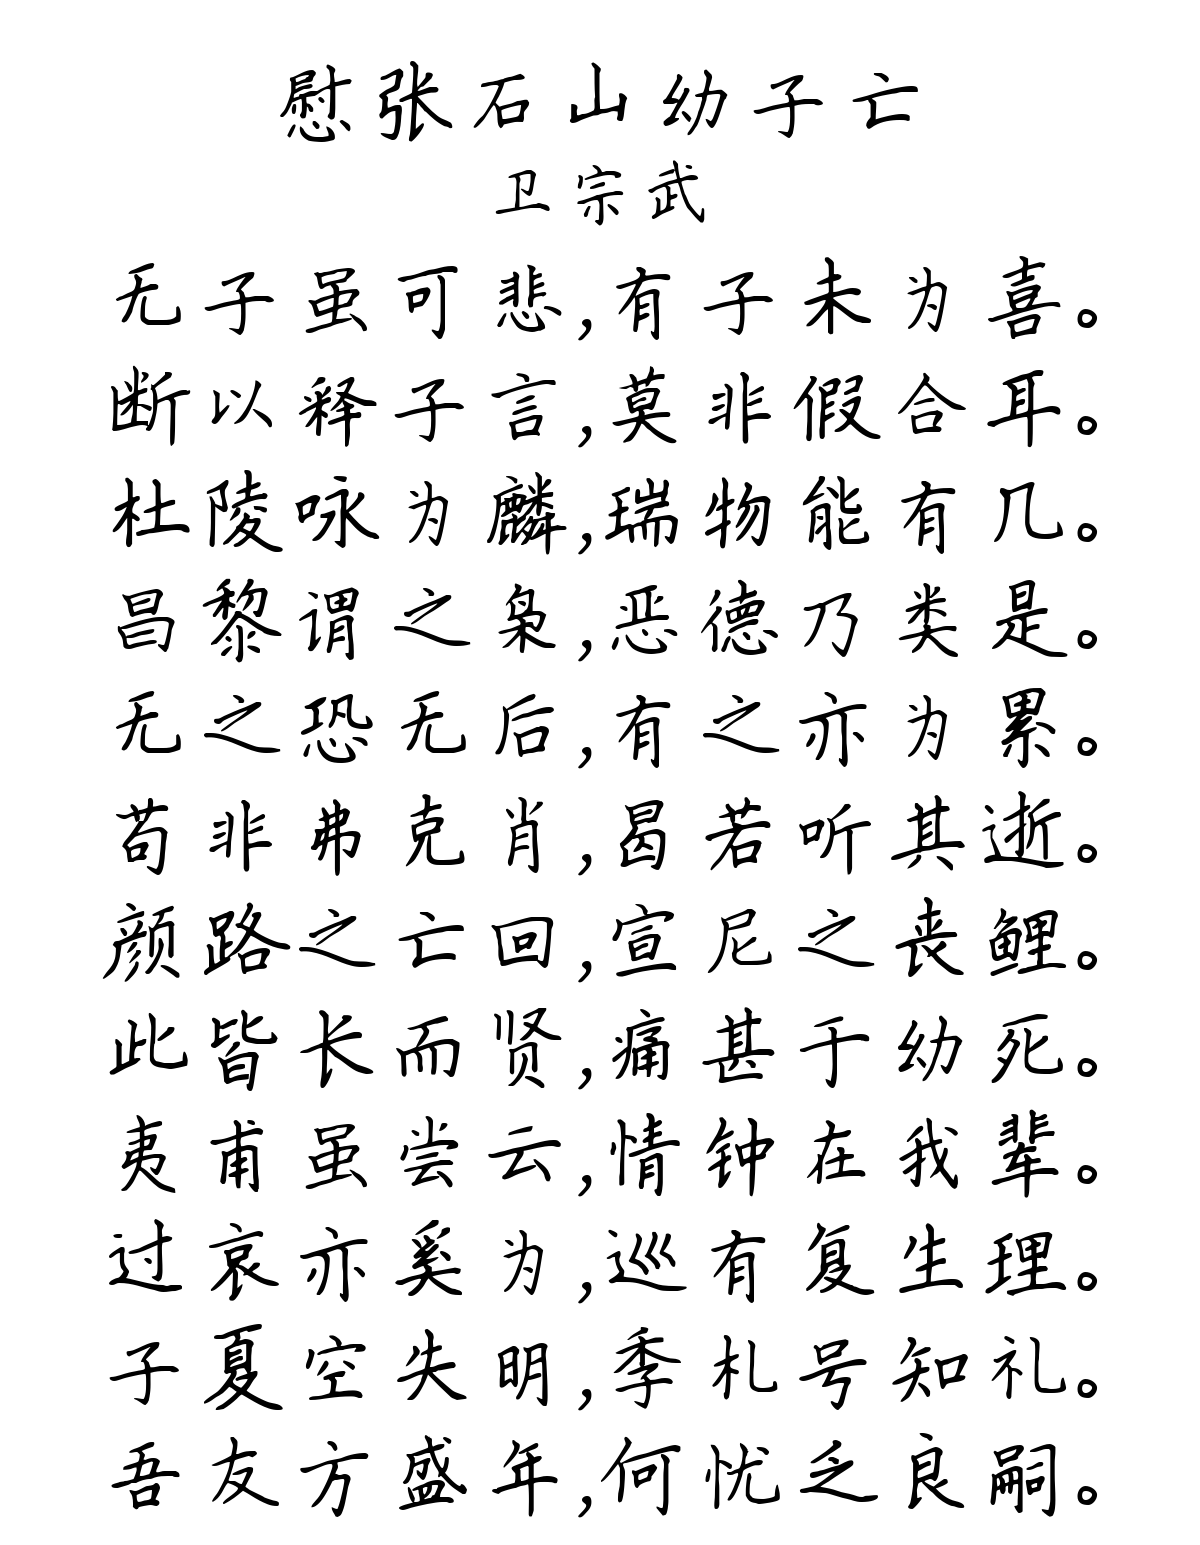 慰张石山幼子亡
卫宗武
无子虽可悲,有子未为喜。
断以释子言,莫非假合耳。
杜陵咏为麟,瑞物能有几。
昌黎谓之枭,恶德乃类是。
无之恐无后,有之亦为累。
苟非弗克肖,曷若听其逝。
颜路之亡回,宣尼之丧鲤。
此皆长而贤,痛甚于幼死。
夷甫虽尝云,情钟在我辈。
过哀亦奚为,巡有复生理。
子夏空失明,季札号知礼。
吾友方盛年,何忧乏良嗣。